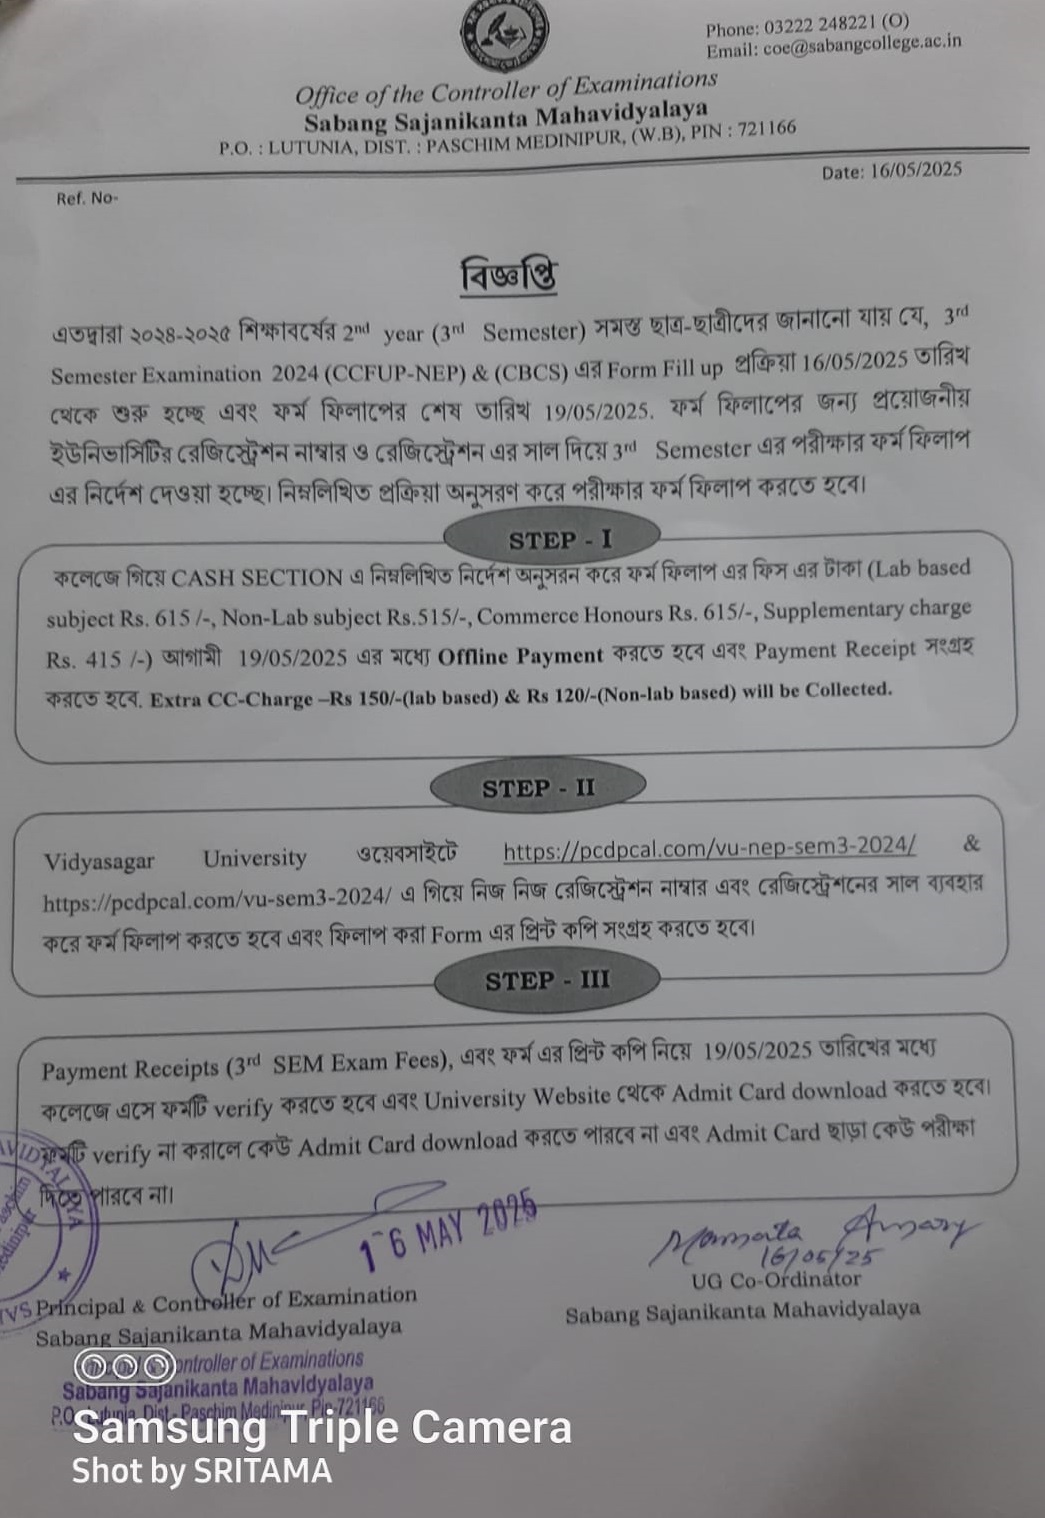 Phone: 03222 248221 (O)
Email: coe@sabangcollege.ac.in
Office of the Controller of Examinations
Sabang Sajanikanta Mahavidyalaya
P.O. : LUTUNIA, DIST. : PASCHIM MEDINIPUR, (W.B), PIN : 721166
Date: 16/05/2025
Ref. No-
বিজ্ঞপ্তি
এতদ্বারা ২০২৪-২০২৫ শিক্ষাবর্ষের 2nd year (3rd Semester) সমস্ত ছাত্র-ছাত্রীদের জানানো যায় যে, 3rd
Semester Examination 2024 (CCFUP-NEP) & (CBCS) এর Form Fill up প্রক্রিয়া 16/05/2025 তারিখ
থেকে শুরু হচ্ছে এবং ফর্ম ফিলাপের শেষ তারিখ 19/05/2025. ফর্ম ফিলাপের জন্য প্রয়োজনীয়
ইউনিভার্সিটির রেজিস্ট্রেশন নাম্বার ও রেজিস্ট্রেশন এর সাল দিয়ে 3rd Semester এর পরীক্ষার ফর্ম ফিলাপ
এর নির্দেশ দেওয়া হচ্ছে। নিম্নলিখিত প্রক্রিয়া অনুসরণ করে পরীক্ষার ফর্ম ফিলাপ করতে হবে।
STEP - I
কলেজে গিয়ে CASH SECTION এ নিম্নলিখিত নির্দেশ অনুসরন করে ফর্ম ফিলাপ এর ফিস এর টাকা (Lab based
subject Rs. 615 /-, Non-Lab subject Rs.515/-, Commerce Honours Rs. 615/-, Supplementary charge
Rs. 415 /-) আগামী 19/05/2025 এর মধ্যে Offline Payment করতে হবে এবং Payment Receipt সংগ্রহ
করতে হবে. Extra CC-Charge –Rs 150/-(lab based) & Rs 120/-(Non-lab based) will be Collected.
STEP - II
Vidyasagar University ওয়েবসাইটে https://pcdpcal.com/vu-nep-sem3-2024/ &
https://pcdpcal.com/vu-sem3-2024/ এ গিয়ে নিজ নিজ রেজিস্ট্রেশন নাম্বার এবং রেজিস্ট্রেশনের সাল ব্যবহার
করে ফর্ম ফিলাপ করতে হবে এবং ফিলাপ করা Form এর প্রিন্ট কপি সংগ্রহ করতে হবে।
STEP - III
Payment Receipts (3rd SEM Exam Fees), এবং ফর্ম এর প্রিন্ট কপি নিয়ে 19/05/2025 তারিখের মধ্যে
কলেজে এসে ফর্মটি verify করতে হবে এবং University Website থেকে Admit Card download করতে হবে।
ফর্মটি verify না করালে কেউ Admit Card download করতে পারবে না এবং Admit Card ছাড়া কেউ পরীক্ষা
দিতে পারবে না।
16 MAY 2025
16/05/25
Principal & Controller of Examination
Sabang Sajanikanta Mahavidyalaya
UG Co-Ordinator
Sabang Sajanikanta Mahavidyalaya
Principal & Controller of Examinations
Sabang Sajanikanta Mahavidyalaya
P.O.-Lutunia, Dist.-Paschim Medinipur, Pin-721166
Samsung Triple Camera
Shot by SRITAMA